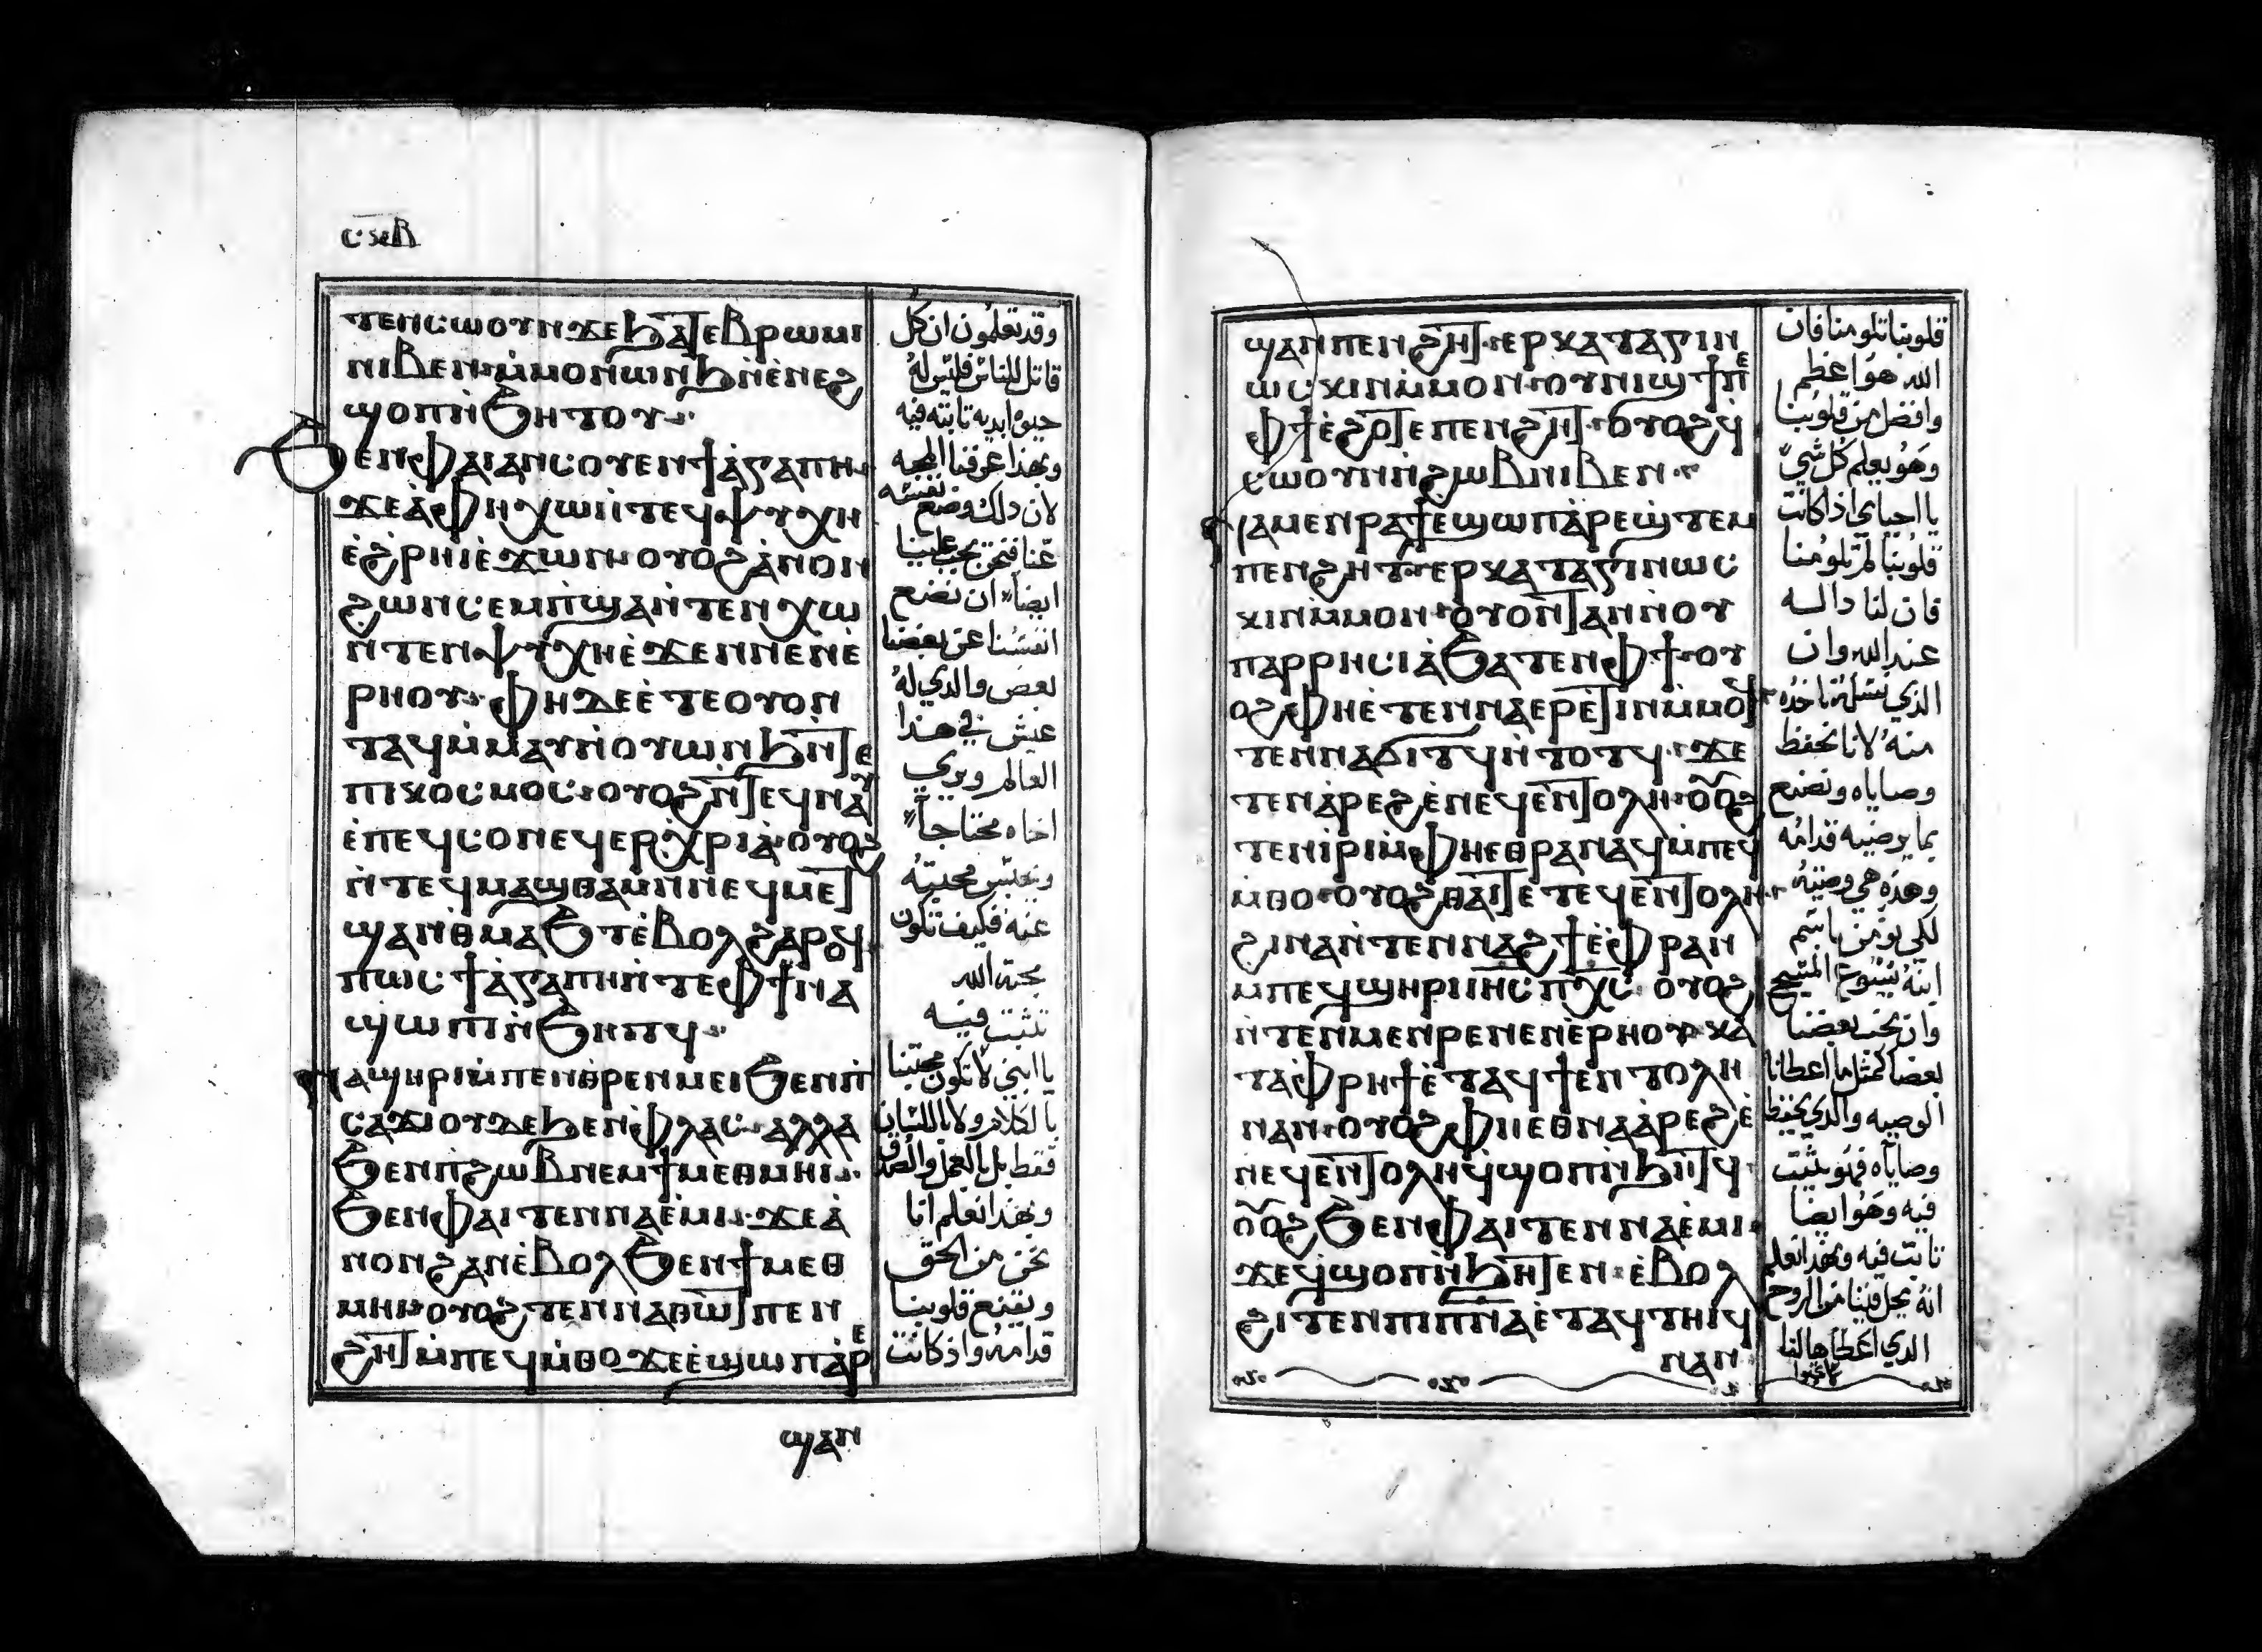 ⲥⲝⲃ
ⲧⲉⲛⲥⲱⲟⲩⲛ ϫⲉ ϧⲁⲧⲉⲃⲣⲱⲙⲓ
ⲛⲓⲃⲉⲛ ⲙ̀ⲙⲟⲛ ⲱⲛϧ ⲛ̀ⲉⲛⲉϩ
ϣⲟⲡ ⲛ̀ϧⲏⲧⲟⲩ
ϧⲉⲛ ⲫⲁⲓ ⲁⲛⲥⲟⲩⲉⲛ ϯⲁ̀ⲅⲁⲡⲏ
ϫⲉ ⲁ̀ ⲫⲏ ⲭⲱ ⲛ̀ⲧⲉϥⲯⲩⲭⲏ
ⲉ̀ϩⲣⲏⲓ ⲉ̀ϫⲱⲛ ⲟⲩⲟϩ ⲁ̀ⲛⲟⲛ
ϩⲱⲛ ⲥⲉⲙⲡϣⲁ ⲛ̀ⲧⲉⲛⲭⲱ
ⲛ̀ⲧⲉⲛⲯⲩⲭⲏ ⲉ̀ϫⲉⲛ ⲛⲉⲛⲉ̀
ⲣⲏⲟⲩ ⲫⲏ ⲇⲉ ⲉ̀ⲧⲉ ⲟⲩⲟⲛ
ⲧⲁϥ ⲙ̀ⲙⲁⲩ ⲛ̀ⲟⲩⲱⲛϧ ⲛ̀ⲧⲉ
ⲡⲓⲕⲟⲥⲙⲟⲥ ⲟⲩⲟϩ ⲛ̀ⲧⲉϥⲛⲁⲩ
ⲉ̀ⲡⲉϥⲥⲟⲛ ⲉϥⲉⲣⲭⲣⲓⲁ̀ ⲟⲩⲟϩ
ⲛ̀ⲧⲉϥⲙⲁϣⲑⲁⲙ ⲛ̀ⲛⲉϥⲙⲉⲧ
ϣⲁⲛⲑⲙⲁϧⲧ ⲉ̀ⲃⲟⲗ ϩⲁⲣⲟϥ
ⲡⲱⲥ ϯⲁ̀ⲅⲁⲡⲏ ⲛ̀ⲧⲉ ⲫϯ ⲛⲁ
ϣⲱⲡⲓ ⲛ̀ϧⲏⲧϥ
ⲛⲁϣⲏⲣⲓ ⲙ̀ⲡⲉⲛⲑⲣⲉⲛⲙⲉⲓ ϧⲉⲛ ⲡ
ⲥⲁϫⲓ ⲟⲩⲇⲉ ϧⲉⲛ ⲫⲗⲁⲥ ⲁⲗⲗⲁ
ϧⲉⲛ ⲡϩⲱⲃ ⲛⲉⲙ ϯⲙⲉⲑⲙⲏⲓ
ϧⲉⲛ ⲫⲁⲓ ⲧⲉⲛⲛⲁⲉ̀ⲙⲓ ϫⲉ ⲁ̀
ⲛⲟⲛ ϩⲁⲛⲉ̀ⲃⲟⲗ ϧⲉⲛ ϯⲙⲉⲑ
ⲙⲏⲓ ⲟⲩⲟϩ ⲧⲉⲛⲛⲁⲑⲱⲧ ⲡⲉⲛ
ϩⲏⲧ ⲙ̀ⲡⲉϥⲙ̀ⲑⲟ ϫⲉ ⲉ̀ϣⲱⲡ ⲁ̀ⲣⲉ
ϣⲁⲛ
وقد تعلمون ان كل
قاتل للناس فليس له
حيوة ابديه تابته فيه
وبهذا عرفنا المحبه
لان ذلك وضع نفسه
عنا فنحن يجب علينا
ايضاً ان نضع
انفسنا عن بعضنا
بعض والدي له
عيش في هذا
العالم ويري
اخاه محتاجاً
ويحبس محبته
عنه فكيف تكون
محبة الله
تثبت فيه
يا ابني لا تكون محبتنا
بالكلام ولا باللسان
فقط بل بالعمل والصدق
وبهذا نعلم انا
نحن من الحق
ويقنع قلوبنا
قدامه واذ كانت
ϣⲁⲛ ⲡⲉⲛϩⲏⲧ ⲉⲣⲕⲁⲧⲁⲅⲓⲛ
ⲱⲥⲕⲓⲛ ⲙ̀ⲙⲟⲛ ⲟⲩⲛⲓϣϯ ⲡⲉ
ⲫϯ ⲉ̀ϩⲟⲧⲉ ⲡⲉⲛϩⲏⲧ ⲟⲩⲟϩ ϥ
ⲥⲱⲟⲩⲛ ⲛ̀ϩⲱⲃ ⲛⲓⲃⲉⲛ
ⲛⲁⲙⲉⲛⲣⲁϯ ⲉϣⲱⲡ ⲁ̀ⲣⲉϣⲧⲉⲙ
ⲡⲉⲛϩⲏⲧ ⲉⲣⲕⲁⲧⲁⲅⲓⲛⲱⲥ
ⲕⲓⲛ ⲙ̀ⲙⲟⲛ ⲟⲩⲟⲛⲧⲁⲛ ⲛ̀ⲟⲩ
ⲡⲁⲣⲣⲏⲥⲓⲁ̀ ϧⲁⲧⲉⲛ ⲫϯ ⲟⲩ
ⲟϩ ⲫⲏ ⲉ̀ⲧⲉⲛⲛⲁⲉⲣⲉ̀ⲧⲓⲛ ⲙ̀ⲙⲟϥ
ⲧⲉⲛⲛⲁϭⲓⲧϥ ⲛ̀ⲧⲟⲧϥ ϫⲉ
ⲧⲉⲛⲁ̀ⲣⲉϩ ⲉ̀ⲛⲉϥⲉⲛⲧⲟⲗⲏ ⲟⲩⲟϩ
ⲧⲉⲛⲓ̀ⲣⲓ ⲙ̀ⲫⲏ ⲉⲑⲣⲁⲛⲁϥ ⲙ̀ⲡⲉϥ
ⲙ̀ⲑⲟ ⲟⲩⲟϩ ⲑⲁⲓ ⲧⲉ ⲧⲉϥⲉⲛⲧⲟⲗⲏ
ϩⲓⲛⲁ ⲛ̀ⲧⲉⲛⲛⲁϩϯ ⲉ̀ⲫⲣⲁⲛ
ⲙ̀ⲡⲉϥϣⲏⲣⲓ ⲓⲏⲥ ⲡⲭⲥ ⲟⲩⲟϩ
ⲛ̀ⲧⲉⲛⲙⲉⲛⲣⲉ ⲛⲉⲛⲉ̀ⲣⲏⲟⲩ ⲕⲁ
ⲧⲁ ⲫⲣⲏϯ ⲉ̀ⲧⲁϥϯ ⲉⲛⲧⲟⲗⲏ
ⲛⲁⲛ ⲟⲩⲟϩ ⲫⲏ ⲉⲑⲛⲁⲁ̀ⲣⲉϩ ⲉ̀
ⲛⲉϥⲉⲛⲧⲟⲗⲏ ϥϣⲟⲡ ⲛ̀ϧⲏⲧϥ
ⲟⲩⲟϩ ϧⲉⲛ ⲫⲁⲓ ⲧⲉⲛⲛⲁⲉ̀ⲙⲓ
ϫⲉ ϥϣⲟⲡ ⲛ̀ϧⲏⲧⲉⲛ ⲉ̀ⲃⲟⲗ
ϩⲓⲧⲉⲛ ⲡⲓⲡⲛⲁ ⲉ̀ⲧⲁϥⲧⲏⲓϥ
ⲛⲁⲛ
قلوبنا تلومنا فان
الله هو اعظم
وافضل من قلوبنا
وهو يعلم كل شي
يا احباي اذا كانت
قلوبنا لم تلومنا
فان لنا داله
عند الله وان
الذي نسله ناخذه
منه لانا نحفظ
وصاياه ونصنع
بما يرضيه قدامه
وهذه هي وصيته
لكي نومن باسم
ابنه يسوع المسيح
وان نحب بعضنا
بعضا كمثل ما اعطانا
الوصيه والدي يحفظ
وصاياه فهو يثبت
فيه وهو ايضا
تابت فيه وبهذا نعلم
انه يحل فينا من الروح
الدي اعطاها لنا